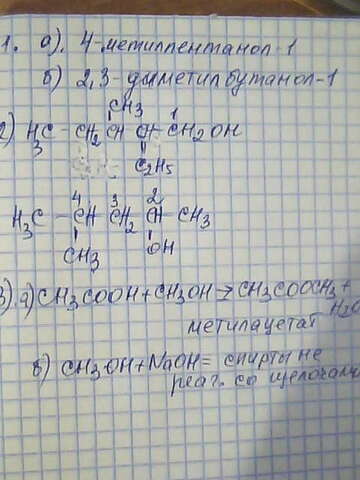 1. а). 4-метилпентанол-1
б) 2,3-диметилбутанол-1
CH3 1
2) H3C - CH2 CH CH - CH2OH
C2H5
4 3 2
H3C - CH CH2 CH - CH3
CH3 OH
3). а) CH3COOH + CH3OH → CH3COOCH3 +
H2O
метилацетат
б) CH3OH + NaOH = спирты не
реаг. со щелочами